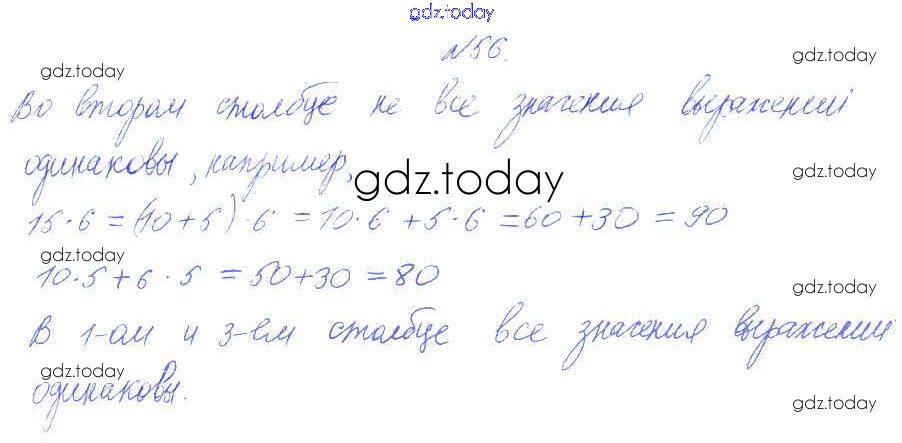 gdz.today
№56.
gdz.today
gdz.today
Во втором столбце не все значения выражений
одинаковы, например,
gdz.today
gdz.today
gdz.today
15·6=(10+5)·6=10·6+5·6=60+30=90
gdz.today
10·5+6·5=50+30=80
gdz.today
В 1-ом и 3-ем столбце все значения выражений
gdz.today
одинаковы.
gdz.today